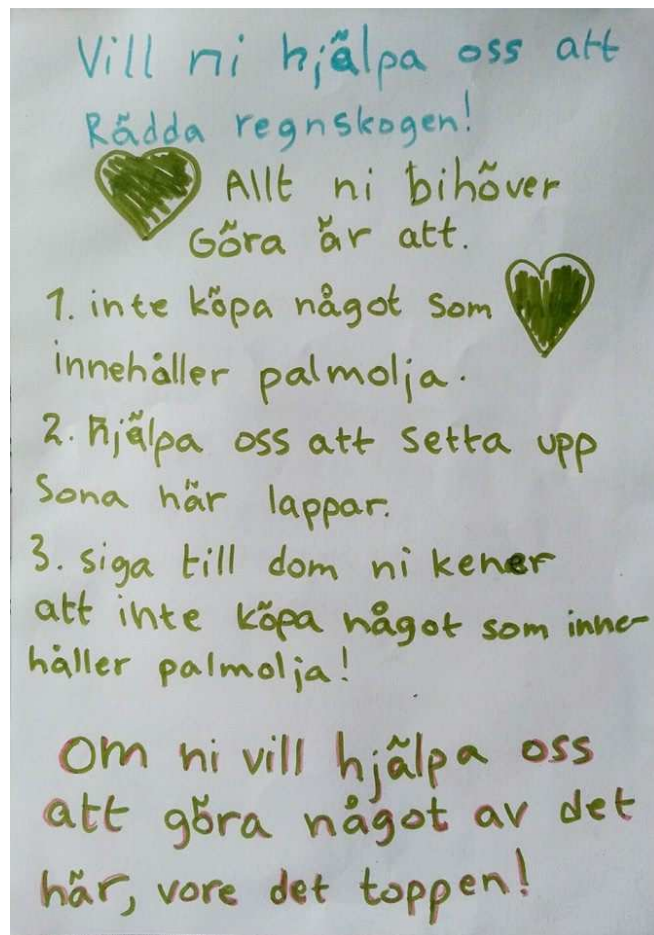 Vill ni hjälpa oss att
Rädda regnskogen!
Allt ni bihöver
Göra är att.
1. inte köpa något som
innehåller palmolja.
2. hjälpa oss att setta upp
Sona här lappar.
3. siga till dom ni kener
att inte köpa något som inne-
håller palmolja!
Om ni vill hjälpa oss
att göra något av det
här, vore det toppen!